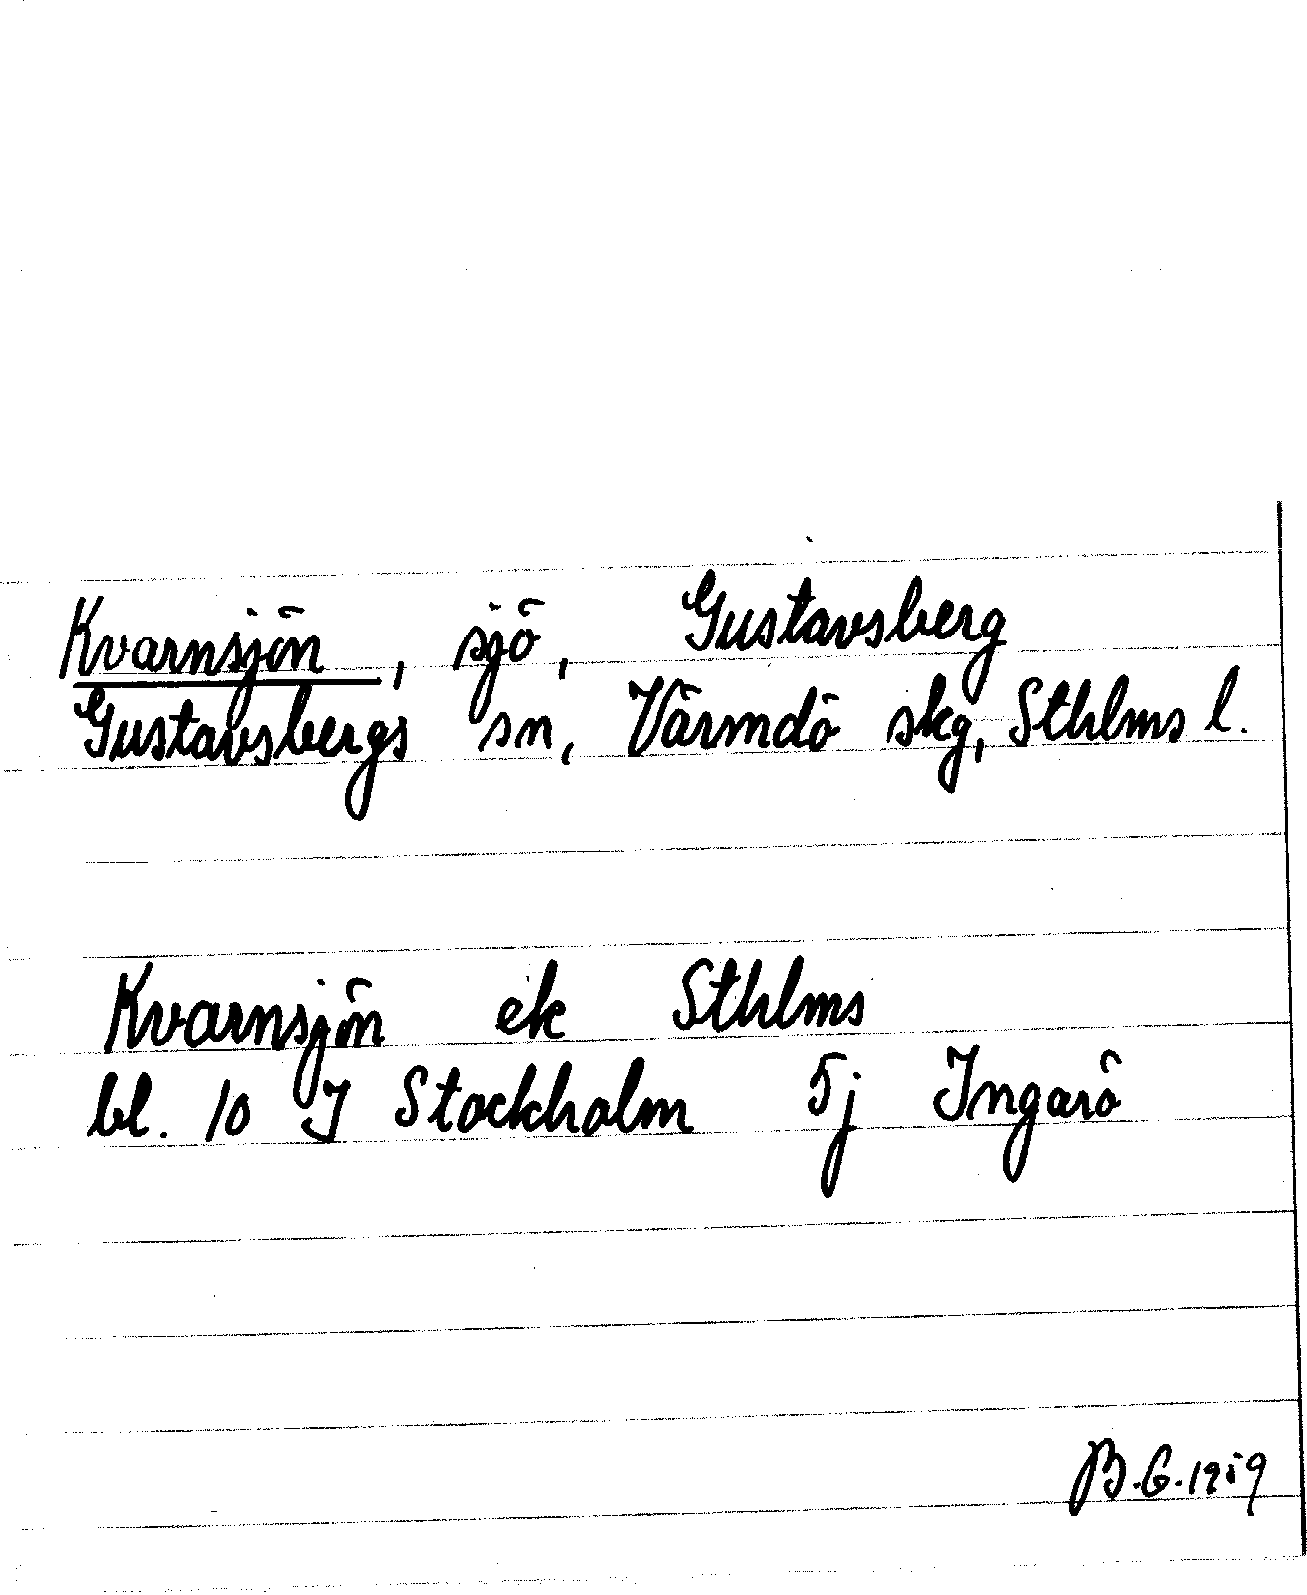 Kvarnsjön, sjö, Gustavsberg
Gustavsbergs sn, Värmdö skg, Sthlms l.
Kvarnsjön ek Sthlms
bl. 10 J Stockholm 5j Ingarö
B.G.1959